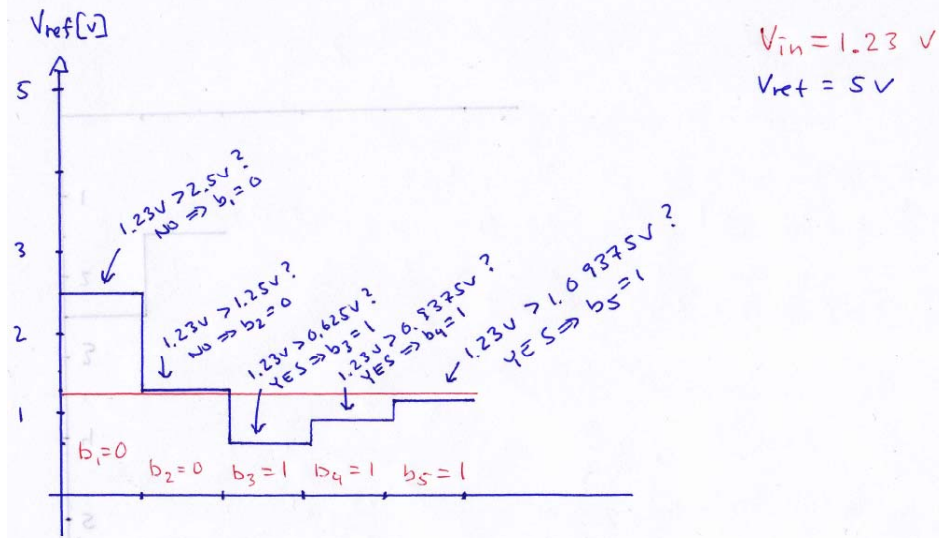 Vref[v]
Vin = 1.23 V
Vref = 5 V
5
3
2
1
1.23v > 2.5v ?
NO => b1 = 0
1.23v > 1.25v ?
NO => b2 = 0
1.23v > 0.625v ?
YES => b3 = 1
1.23v > 0.9375v ?
YES => b4 = 1
1.23v > 1.09375v ?
YES => b5 = 1
b1=0
b2=0
b3=1
b4=1
b5=1